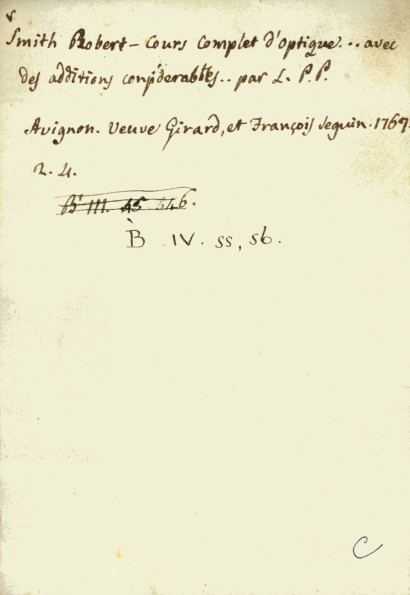 Smith Robert - Cours Complet d'Optique... avec
des additions considerables.. par L. P. P.
Avignon. Veuve Girard, et François Seguin. 1767.
2. 4.
B. III. 45 546.
B. IV. 55, 56.
C